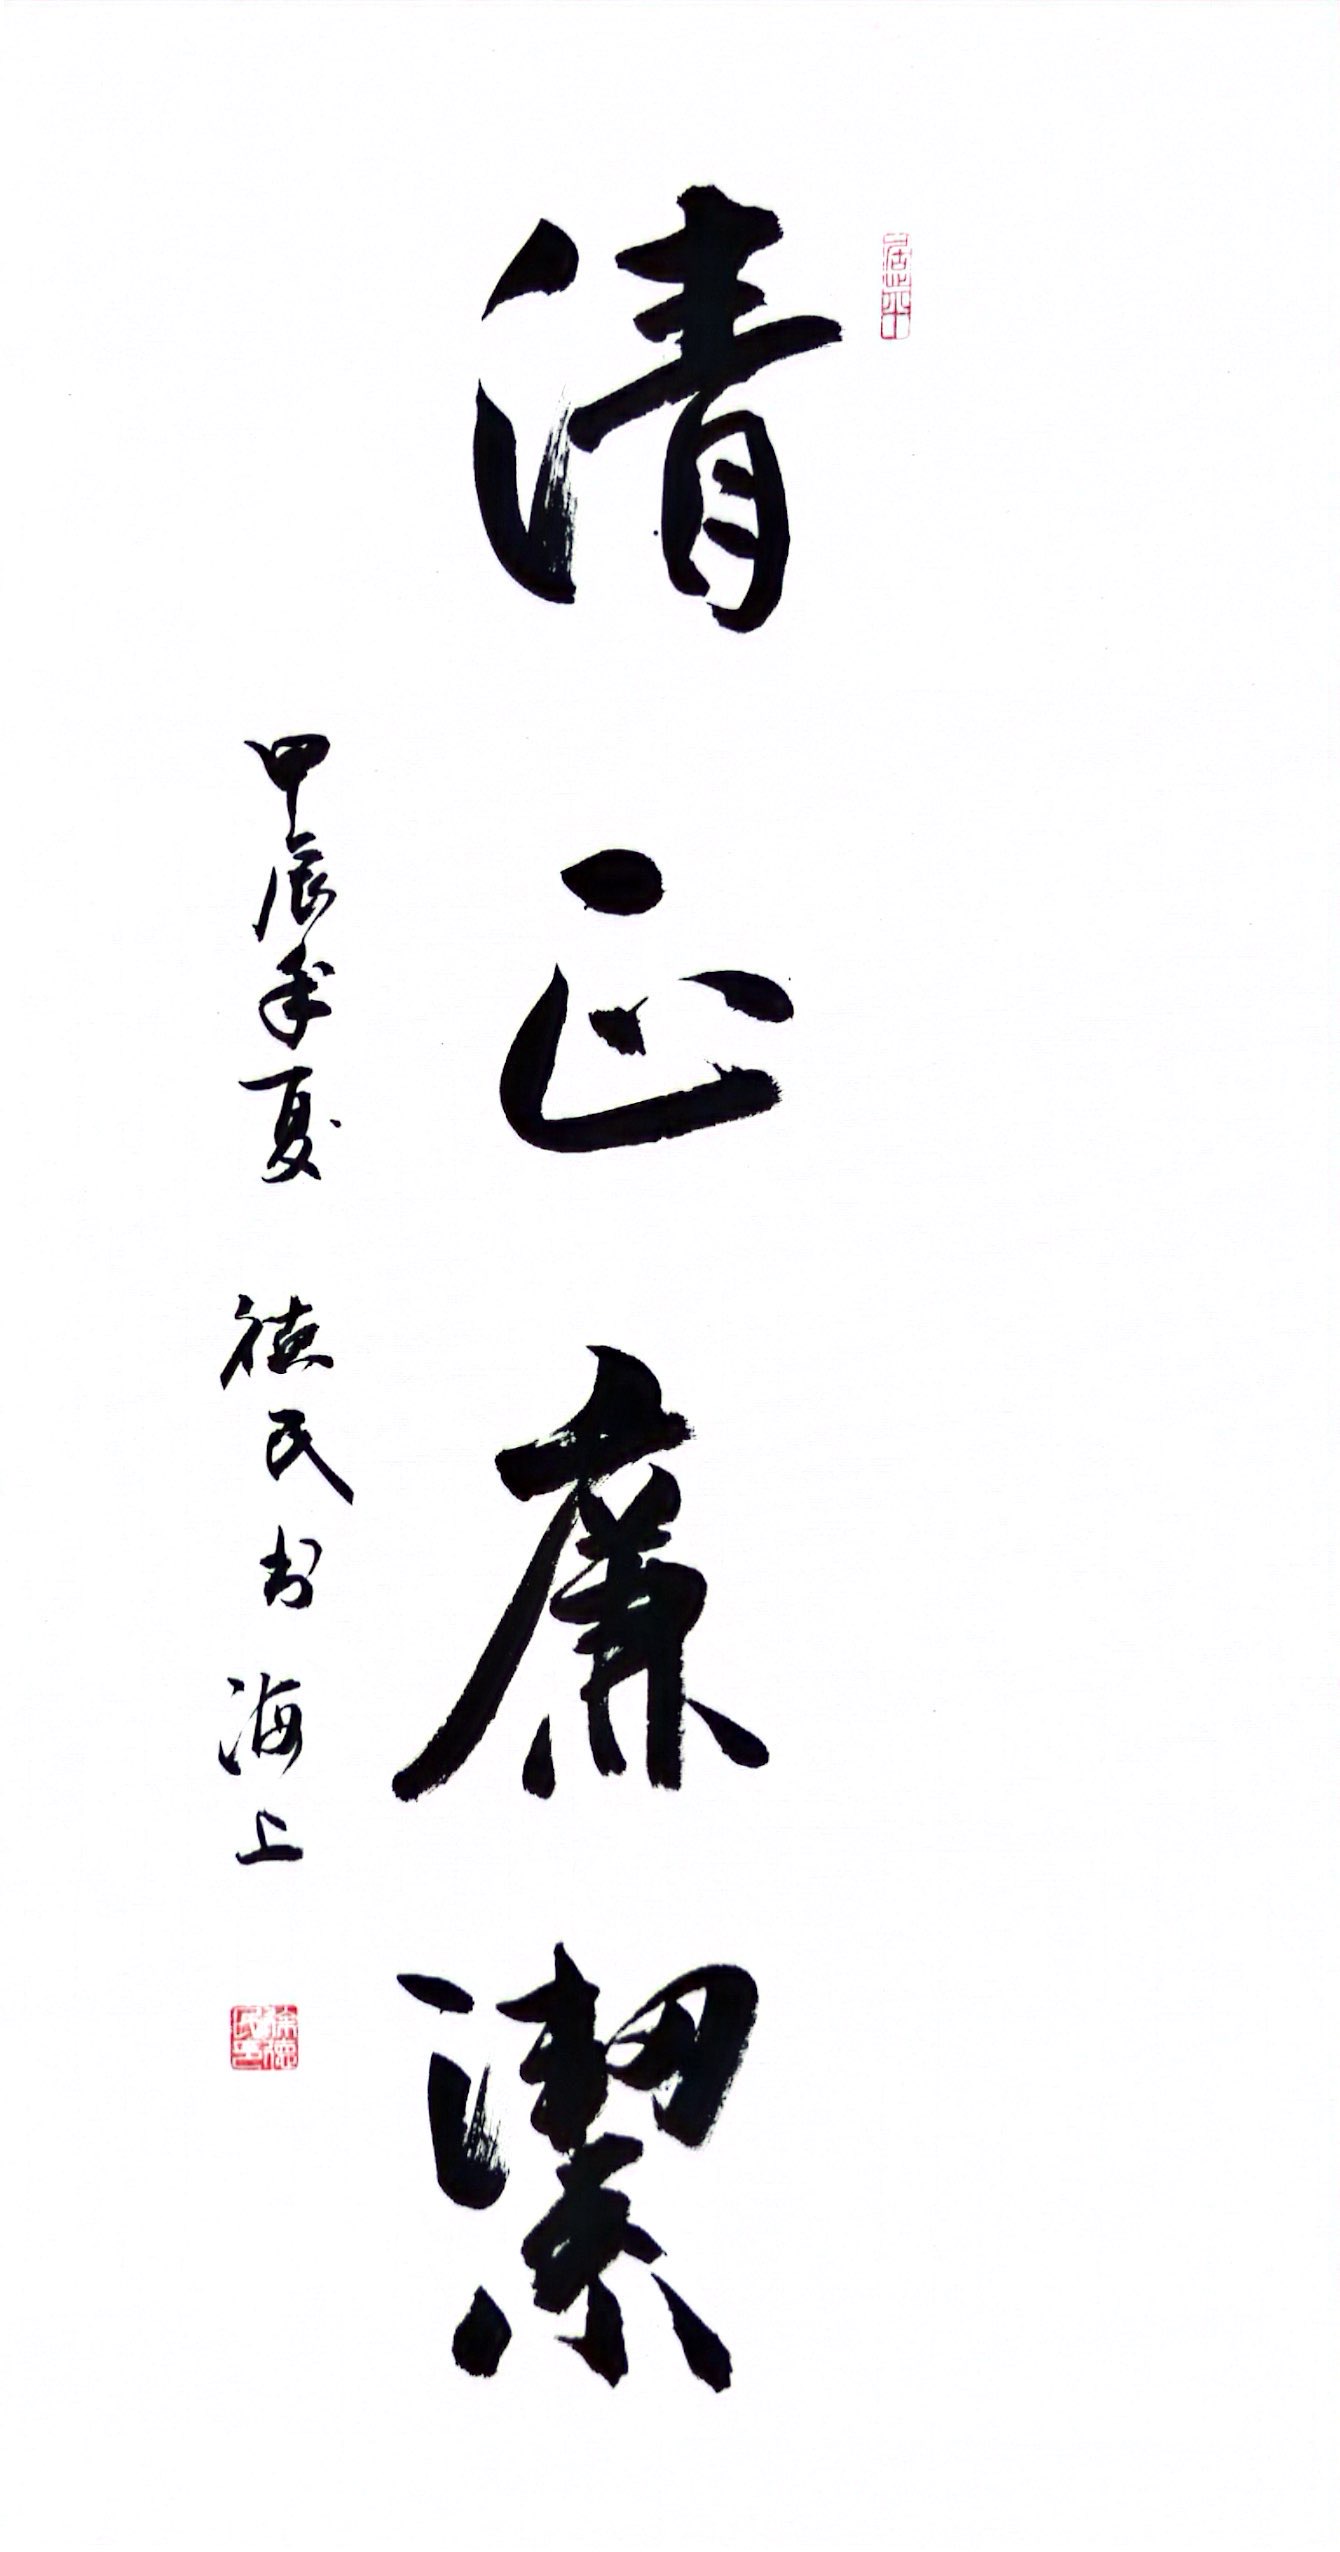 清正廉潔
甲辰年夏 德民书 海上